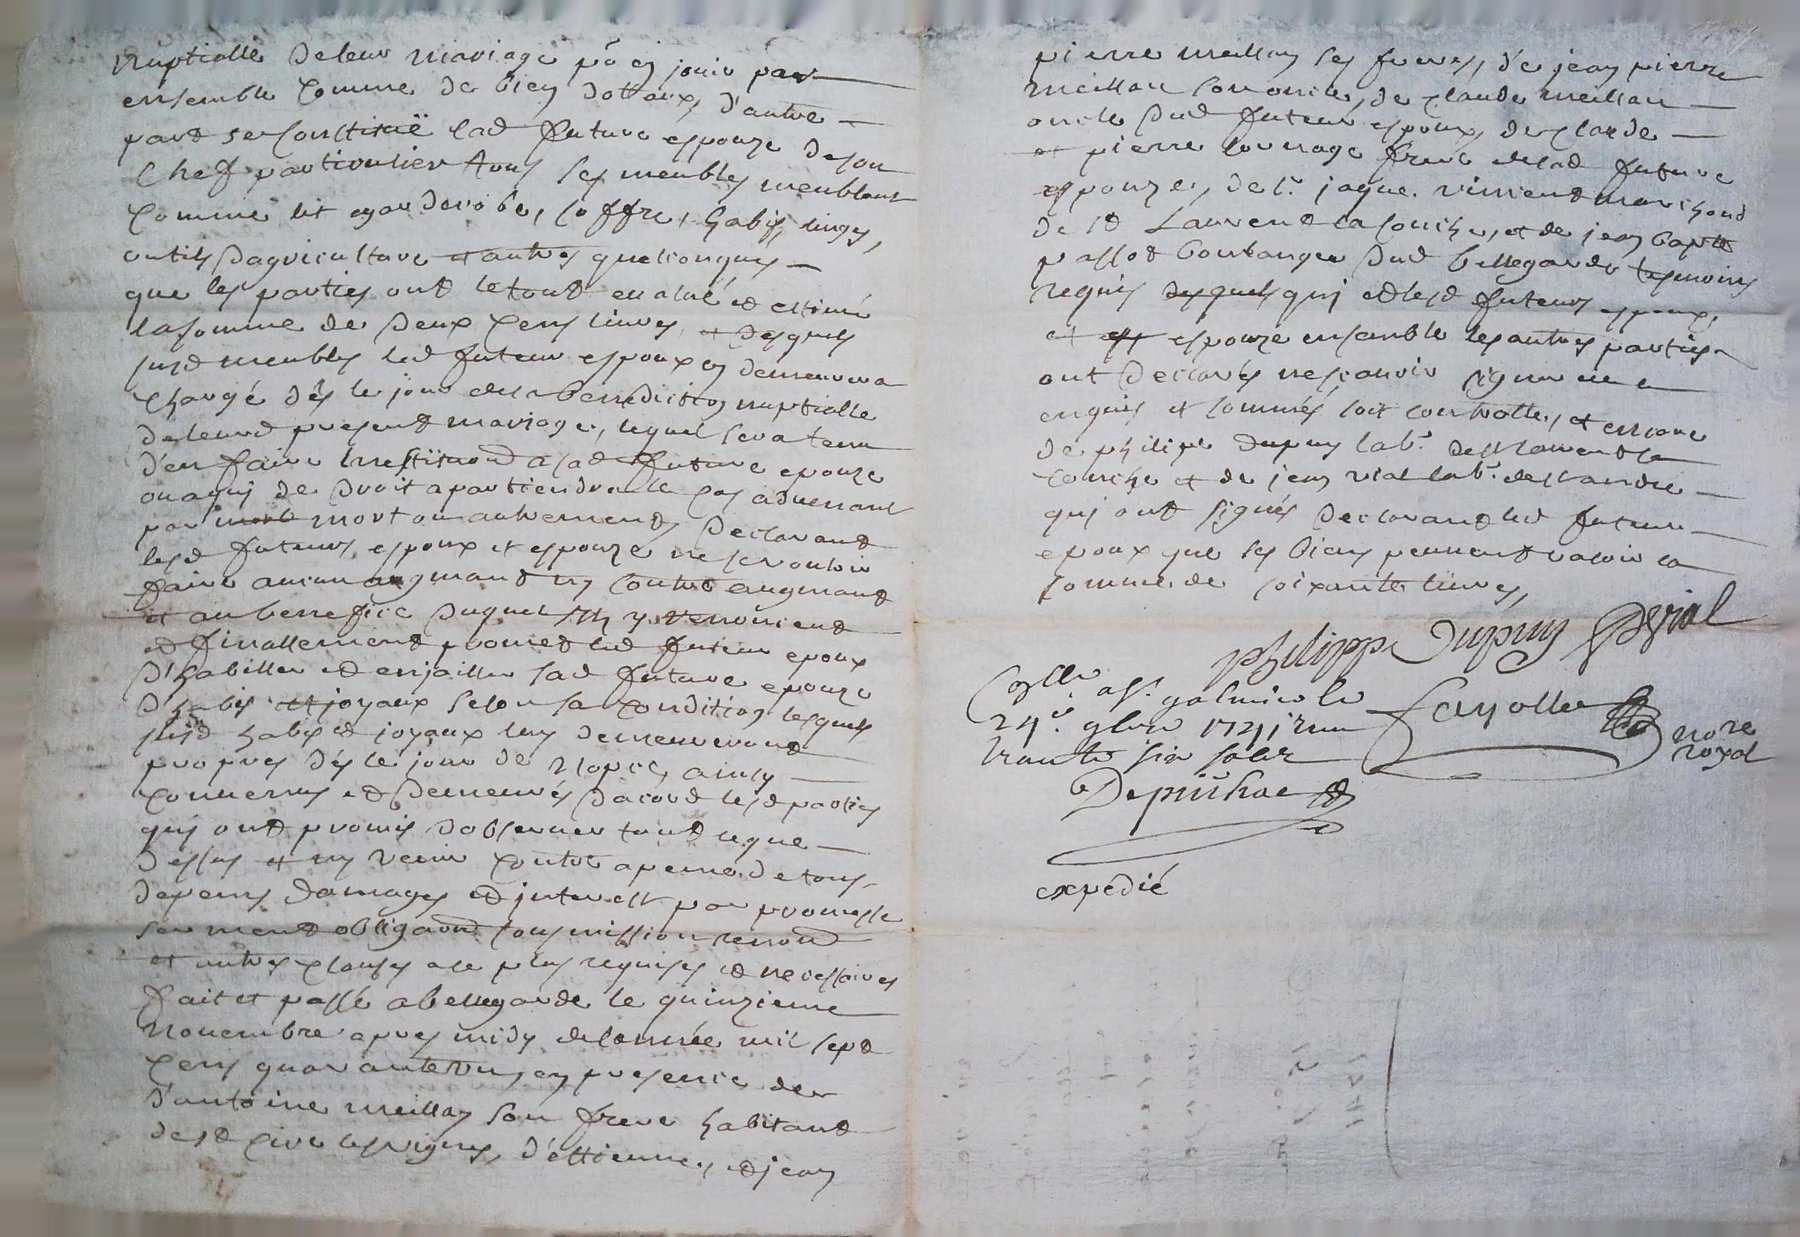 nuptialle de leur mariage po en jouir par
ensemble comme de bien dottaux, d'autre
part se constituë lad future espouze de son
chef particulier tous ses meubles meublant
comme lit garderobe, coffre, habis, linges,
outils dagriculture et autres quelconques
que les parties ont le tout evalué et estimé
la somme de deux cens livres, et desquels
susd meubles led futeur espoux en demeurera
chargé dés le jour de la benediction nuptialle
de leurd present mariage, lequel sera tenu
d'en faire restitiond a sad future epouze
ou a qui de droit apartiendra le cas advenant
par mort ou autrement, declarant
lesd futeurs espoux et espouze ne se vouloir
faire aucun augmant ny contre augmant
et au benefice duquel ils y renoncent
et finallement promet led futeur epoux
d'habiller et enjailler sad future epouze
d'habis et joyaux selon sa condition lesquels
susd habis et joyaux luy demeureront
propres dés le jour de nopces, ainsy
convenus et demeurés dacord lesd parties
qui ont promis dobserver tout ce que
dessus et ny venir contre a peine de tous
depens damages et interest par promesse
serment obligaond sousmission renond
et autres clauses a ce plus requises et necessaires
fait et passé a bellegarde le quinzieme
novembre apres midy de lannée mil sept
cens quarante un, en presence de
d'antoine meillan son frere habitant
de st cire les vignes, d'ettienne, et jean
pierre meillan ses freres, de jean pierre
meillan son oncle, de claude meillan
oncle dud futeur espoux, de claude
et pierre fouverage frere de lad future
espouze, de sr. jaque vincent marchand
de st Laurent la conche, et de jean baptte
passot boulanger dud bellegarde tesmoins
requis desquels qui et lesd futeurs espoux,
et espouze ensemble les autres parties
ont declarés ne scavoir signer de ce
enquis et sommés, soit controllé, et encore
de philipe dupuy labr. de st laurent la
conche et de jean vial labr. de st andré
qui ont signés declarant led futeur
epoux que ses biens peuvent valoir la
somme de soixante livres,
philippe Dupuy J vial
Collé a st. galmier le
24e. 9bre 1741, reçu
trante six sols
Fayolle
nore
royal
Depuihac
expedié